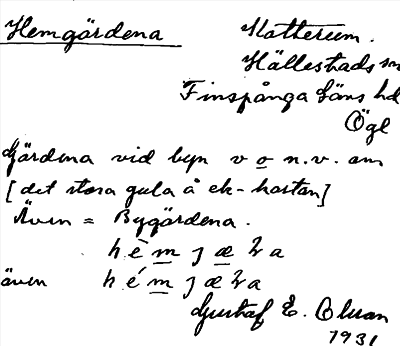 Hemgärdena
Katterum.
Hällestads sn
Finspånga läns hd
Ögl
Gärdena vid byn v o n.v. om
[det stora gula å ek-kartan]
Även = Bygärdena.
h è m j æ ɽ a
även h é m j æ ɽ a
Gustaf E. Olsson
1931